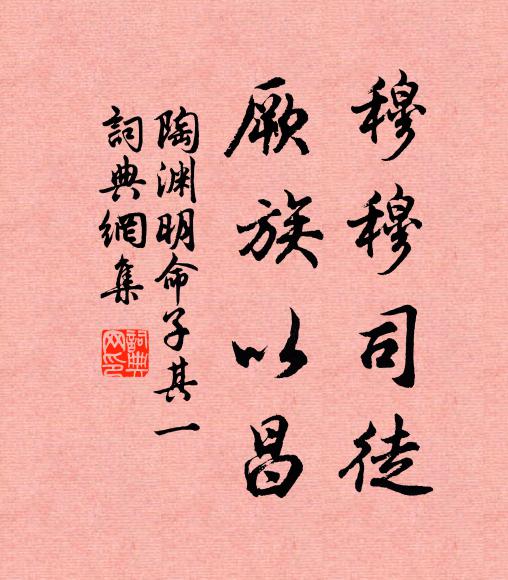 穆穆司徒
厥族以昌
陶渊明命子其一
詞典網集
詞典
网印